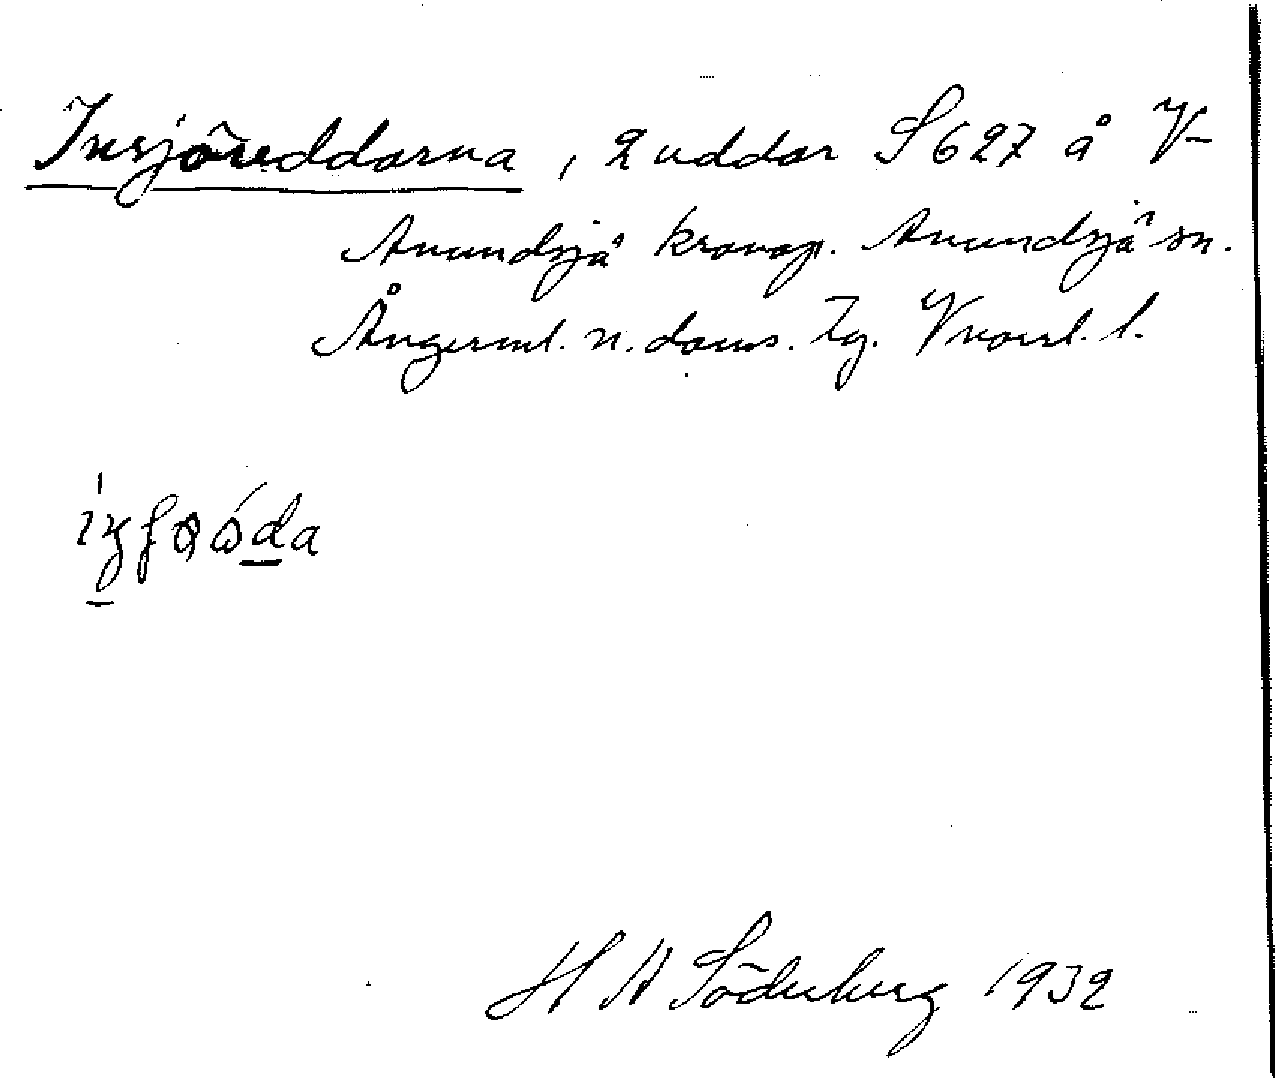 Insjöuddarna, 2 uddar S 627 å V-
Anundsjö kronop. Anundsjö sn.
Ångerml. n. doms. Tg. Vnorrl. l.
H A Söderberg 1932